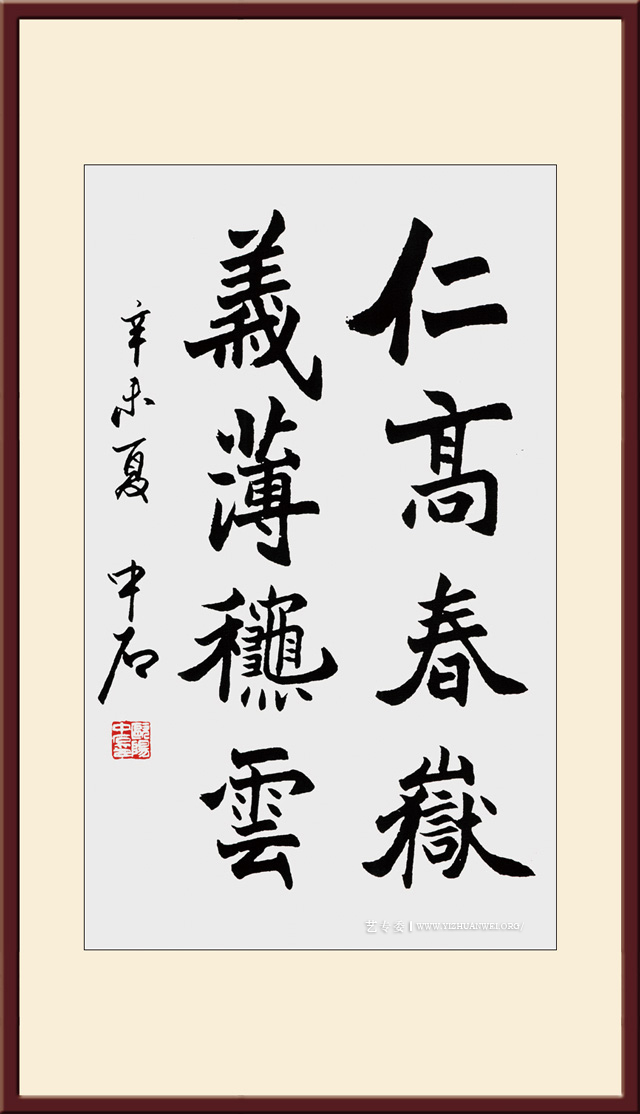 仁髙春嶽
義薄龝雲
辛未夏 中石
歐陽中石
艺专委 | WWW.YIZHUANWEI.ORG